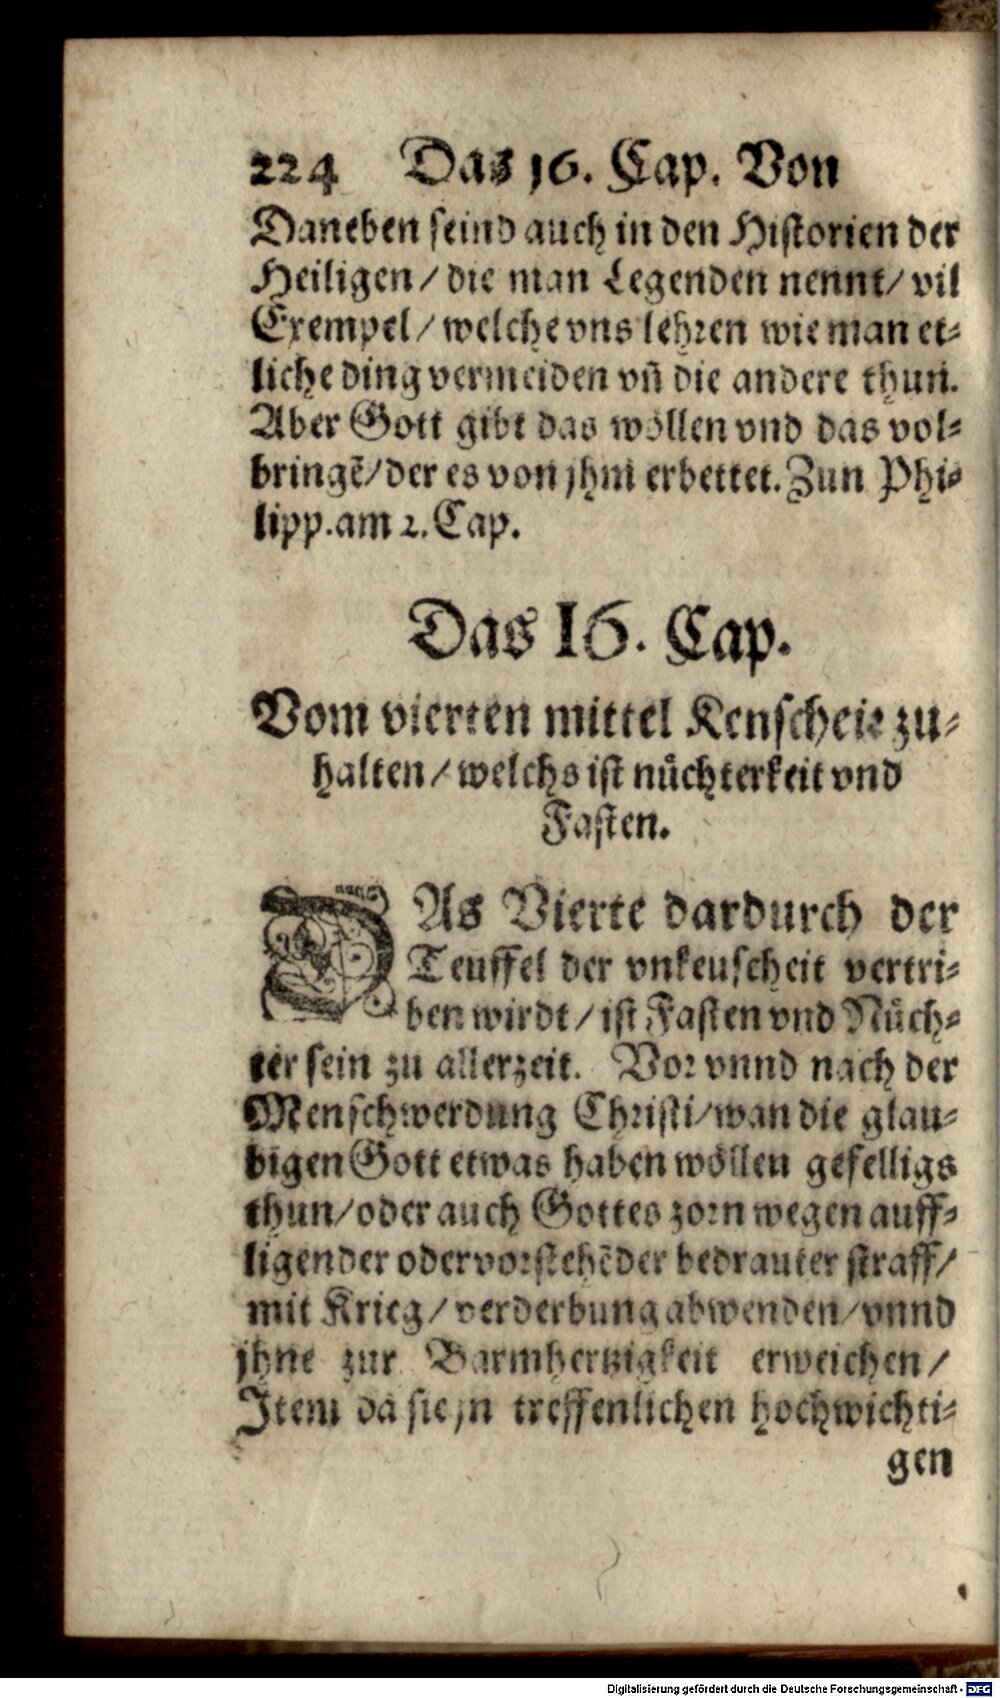 224 Das 16. Cap. Von
Daneben seind auch in den Historien der
Heiligen/ die man Legenden nennt/ vil
Exempel/ welche vns lehren wie man et-
liche ding vermeiden vñ die andere thun.
Aber Gott gibt das wöllen vnd das vol-
bringẽ/ der es von jhm erbettet. Zun Phi-
lipp. am 2. Cap.
Das 16. Cap.
Vom vierten mittel Kenscheit zu-
halten/ welchs ist nüchterkeit vnd
Fasten.
DAs Vierte dardurch der
Teuffel der vnkeuscheit vertri-
ben wirdt/ ist Fasten vnd Nüch-
ter sein zu allerzeit. Vor vnnd nach der
Menschwerdung Christi/ wan die glau-
bigen Gott etwas haben wöllen gefelligs
thun/ oder auch Gottes zorn wegen auff-
ligender oder vorstehẽder bedrauter straff/
mit Krieg/ verderbung abwenden/ vnnd
jhne zur Barmhertzigkeit erweichen/
Item da sie jn treffenlichen hochwichti-
gen
Digitalisierung gefördert durch die Deutsche Forschungsgemeinschaft - DFG